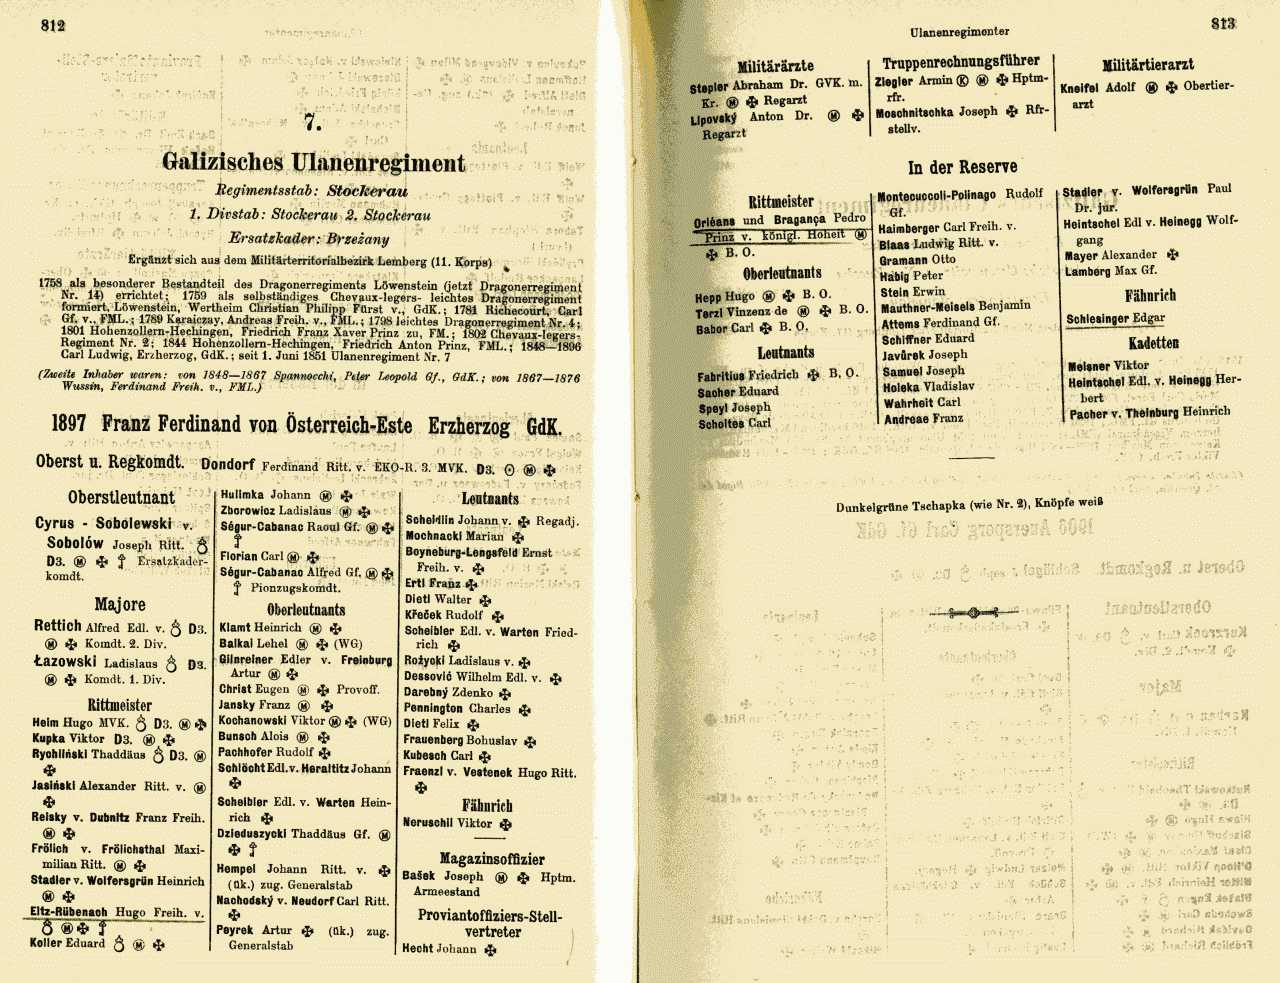 812
7.
Galizisches Ulanenregiment
Regimentsstab: Stockerau
1. Divstab: Stockerau 2. Stockerau
Ersatzkader: Brzeżany
Ergänzt sich aus dem Militärterritorialbezirk Lemberg (11. Korps)
1758 als besonderer Bestandteil des Dragonerregiments Löwenstein (jetzt Dragonerregiment
Nr. 14) errichtet; 1759 als selbständiges Chevaux-legers- leichtes Dragonerregiment
formiert, Löwenstein, Wertheim Christian Philipp Fürst v., GdK.; 1781 Richecourt, Carl
Gf. v., FML.; 1789 Karaiczay, Andreas Freih. v., FML.; 1798 leichtes Dragonerregiment Nr. 4;
1801 Hohenzollern-Hechingen, Friedrich Franz Xaver Prinz zu, FM.; 1802 Chevaux-legers-
Regiment Nr. 2; 1844 Hohenzollern-Hechingen, Friedrich Anton Prinz, FML.; 1848—1896
Carl Ludwig, Erzherzog, GdK.; seit 1. Juni 1851 Ulanenregiment Nr. 7
(Zweite Inhaber waren: von 1848—1867 Spannocchi, Peter Leopold Gf., GdK.; von 1867—1876
Wussin, Ferdinand Freih. v., FML.)
1897 Franz Ferdinand von Österreich-Este Erzherzog GdK.
Oberst u. Regkomdt. Dondorf Ferdinand Ritt. v. EKO-R. 3. MVK. D3. ʘ Ⓜ ✠
Oberstleutnant
Cyrus - Sobolewski v.
Sobolów Joseph Ritt.
D3. Ⓜ ✠ Ersatzkader-
komdt.
Majore
Rettich Alfred Edl. v. D3.
Ⓜ ✠ Komdt. 2. Div.
Łazowski Ladislaus D3.
Ⓜ ✠ Komdt. 1. Div.
Rittmeister
Heim Hugo MVK. D3. Ⓜ ✠
Kupka Viktor D3. Ⓜ ✠
Rychliński Thaddäus D3. Ⓜ
✠
Jasiński Alexander Ritt. v. Ⓜ
✠
Reisky v. Dubnitz Franz Freih.
Ⓜ ✠
Frölich v. Frölichsthal Maxi-
milian Ritt. Ⓜ ✠
Stadler v. Wolfersgrün Heinrich
Ⓜ ✠
Eltz-Rübenach Hugo Freih. v.
Ⓜ ✠
Koller Eduard Ⓜ ✠
Hulimka Johann Ⓜ ✠
Zborowicz Ladislaus Ⓜ ✠
Ségur-Cabanac Raoul Gf. Ⓜ ✠
Florian Carl Ⓜ ✠
Ségur-Cabanac Alfred Gf. Ⓜ ✠
Pionzugskomdt.
Oberleutnants
Klamt Heinrich Ⓜ ✠
Balkai Lehel Ⓜ ✠ (WG)
Gilnreiner Edler v. Freinburg
Artur Ⓜ ✠
Christ Eugen Ⓜ ✠ Provoff.
Jansky Franz Ⓜ ✠
Kochanowski Viktor Ⓜ ✠ (WG)
Bunsch Alois Ⓜ ✠
Pachhofer Rudolf ✠
Schlöcht Edl. v. Heraltitz Johann
✠
Scheibler Edl. v. Warten Hein-
rich ✠
Dzieduszycki Thaddäus Gf. Ⓜ
✠
Hempel Johann Ritt. v. ✠
(ük.) zug. Generalstab
Nachodský v. Neudorf Carl Ritt.
✠
Peyrek Artur ✠ (ük.) zug.
Generalstab
Leutnants
Scheidlin Johann v. ✠ Regadj.
Mochnacki Marian ✠
Boyneburg-Lengsfeld Ernst
Freih. v. ✠
Ertl Franz ✠
Dietl Walter ✠
Křeček Rudolf ✠
Scheibler Edl. v. Warten Fried-
rich ✠
Rożycki Ladislaus v. ✠
Dessović Wilhelm Edl. v. ✠
Darebný Zdenko ✠
Pennington Charles ✠
Dietl Felix ✠
Frauenberg Bohuslav ✠
Kubesch Carl ✠
Fraenzl v. Vestenek Hugo Ritt.
✠
Fähnrich
Neruschil Viktor ✠
Magazinsoffizier
Bašek Joseph Ⓜ ✠ Hptm.
Armeestand
Proviantoffiziers-Stell-
vertreter
Hecht Johann ✠
Ulanenregimenter
813
Militärärzte
Stepler Abraham Dr. GVK. m.
Kr. Ⓜ ✠ Regarzt
Lipovský Anton Dr. Ⓜ ✠
Regarzt
Truppenrechnungsführer
Ziegler Armin Ⓚ Ⓜ ✠ Hptm-
rfr.
Moschnitschka Joseph ✠ Rfr-
stellv.
Militärtierarzt
Kneifel Adolf Ⓜ ✠ Obertier-
arzt
In der Reserve
Rittmeister
Orléans und Bragança Pedro
Prinz v. königl. Hoheit Ⓜ
✠ B. O.
Oberleutnants
Hepp Hugo Ⓜ ✠ B. O.
Terzi Vinzenz de Ⓜ ✠ B. O.
Babor Carl ✠ B. O.
Leutnants
Fabritius Friedrich ✠ B. O.
Sacher Eduard
Speyl Joseph
Scholtes Carl
Montecuccoli-Polinago Rudolf
Gf.
Haimberger Carl Freih. v.
Blaas Ludwig Ritt. v.
Gramann Otto
Habig Peter
Stein Erwin
Mauthner-Meisels Benjamin
Attems Ferdinand Gf.
Schiffner Eduard
Javůrek Joseph
Samuel Joseph
Holeka Vladislav
Wahrheit Carl
Andreae Franz
Stadler v. Wolfersgrün Paul
Dr. jur.
Heintschel Edl v. Heinegg Wolf-
gang
Mayer Alexander ✠
Lamberg Max Gf.
Fähnrich
Schlesinger Edgar
Kadetten
Meisner Viktor
Heintschel Edl. v. Heinegg Her-
bert
Pacher v. Theinburg Heinrich
Dunkelgrüne Tschapka (wie Nr. 2), Knöpfe weiß